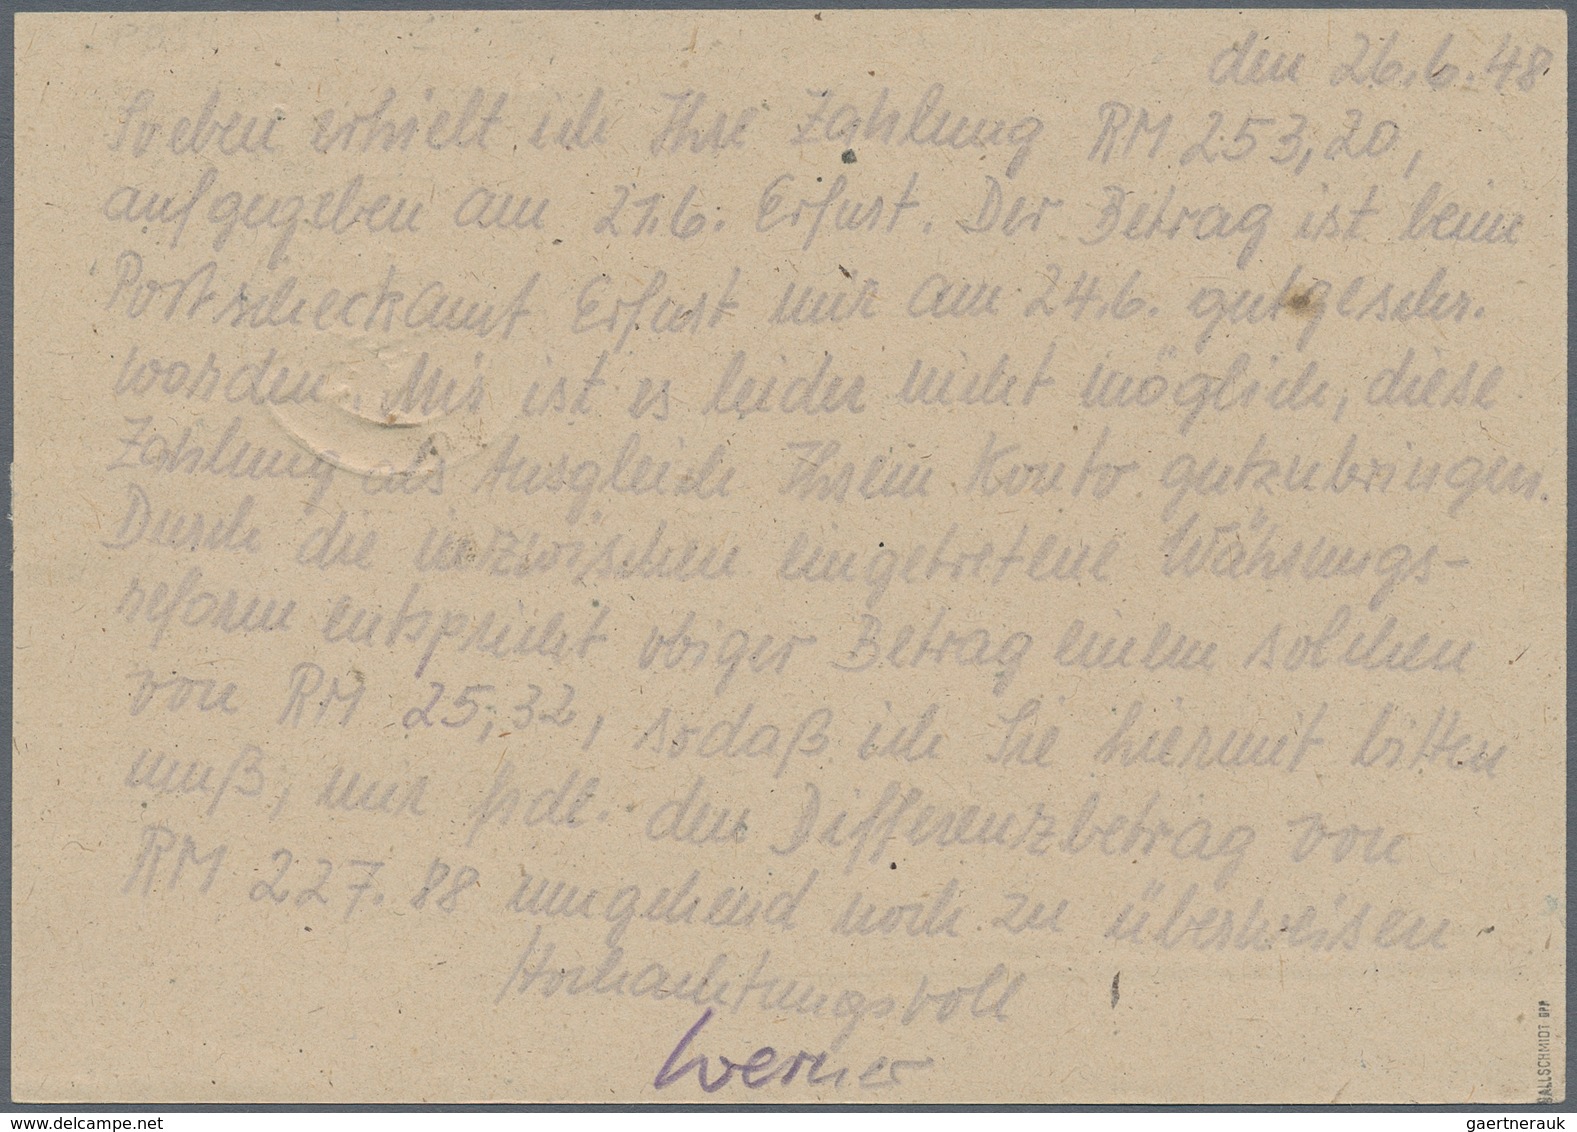 den 26.6.48
Soeben erhielt ich Ihre Zahlung RM 253,20,
aufgegeben am 21.6. Erfurt. Der Betrag ist beim
Postscheckamt Erfurt mir am 24.6. gutgeschr.
worden. Mir ist es leider nicht möglich, diese
Zahlung als Ausgleich Ihrem Konto gutzubringen.
Durch die inzwischen eingetretene Währungs-
reform entspricht obiger Betrag einem solchen
von RM 25,32, sodaß ich Sie hiermit bitten
muß, mir frdl. den Differenzbetrag von
RM 227.88 umgehend noch zu überweisen
Hochachtungsvoll
Werner
BALLSCHMIDT BPP
www.delcampe.net
gaertnerauk